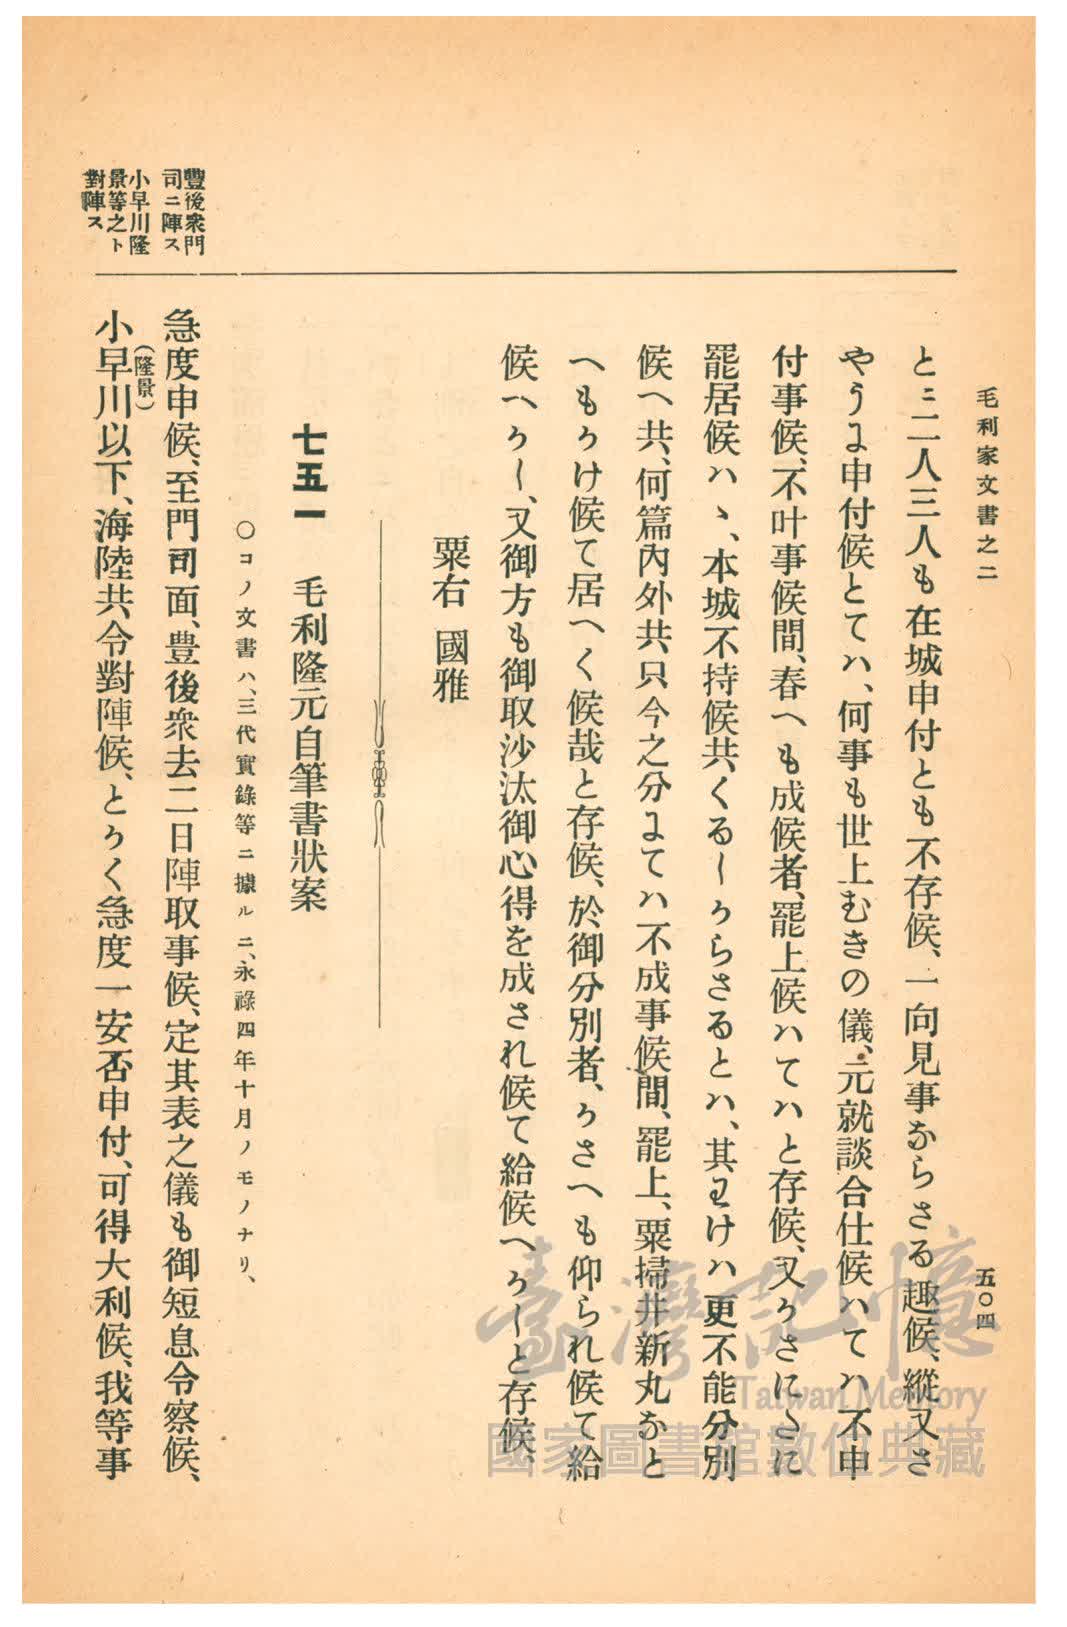 毛利家文書之二
五〇四
とニ二人三人も在城申付とも不存候、一向見事ならさる趣候、縱又さ
やうに申付候とてハ、何事も世上むきの儀、元就談合仕候ハてハ不申
付事候、不叶事候間、春へも成候者、罷上候ハてハと存候、又かさにさに
罷居候ハヽ、本城不持候共、くるしからさるとハ、其わけハ更不能分別
候へ共、何篇內外共、只今之分にてハ不成事候間、罷上、粟掃井新丸なと
へもかけ候て居へく候哉と存候、於御分別者、かさへも仰られ候て給
候へかし、又御方も御取沙汰御心得を成され候て給候へかしと存候、
粟右 國雅
七五一 毛利隆元自筆書狀案
〇コノ文書ハ、三代實錄等ニ據ルニ、永祿四年十月ノモノナリ、
急度申候、至門司面、豊後衆去二日陣取事候、定其表之儀も御短息令察候、
小早川(隆景)以下、海陸共令對陣候、とかく急度一安否申付、可得大利候、我等事
豐後衆門
司ニ陣ス
小早川隆
景等之ト
對陣ス
臺灣記憶
Taiwan Memory
國家圖書館數位典藏